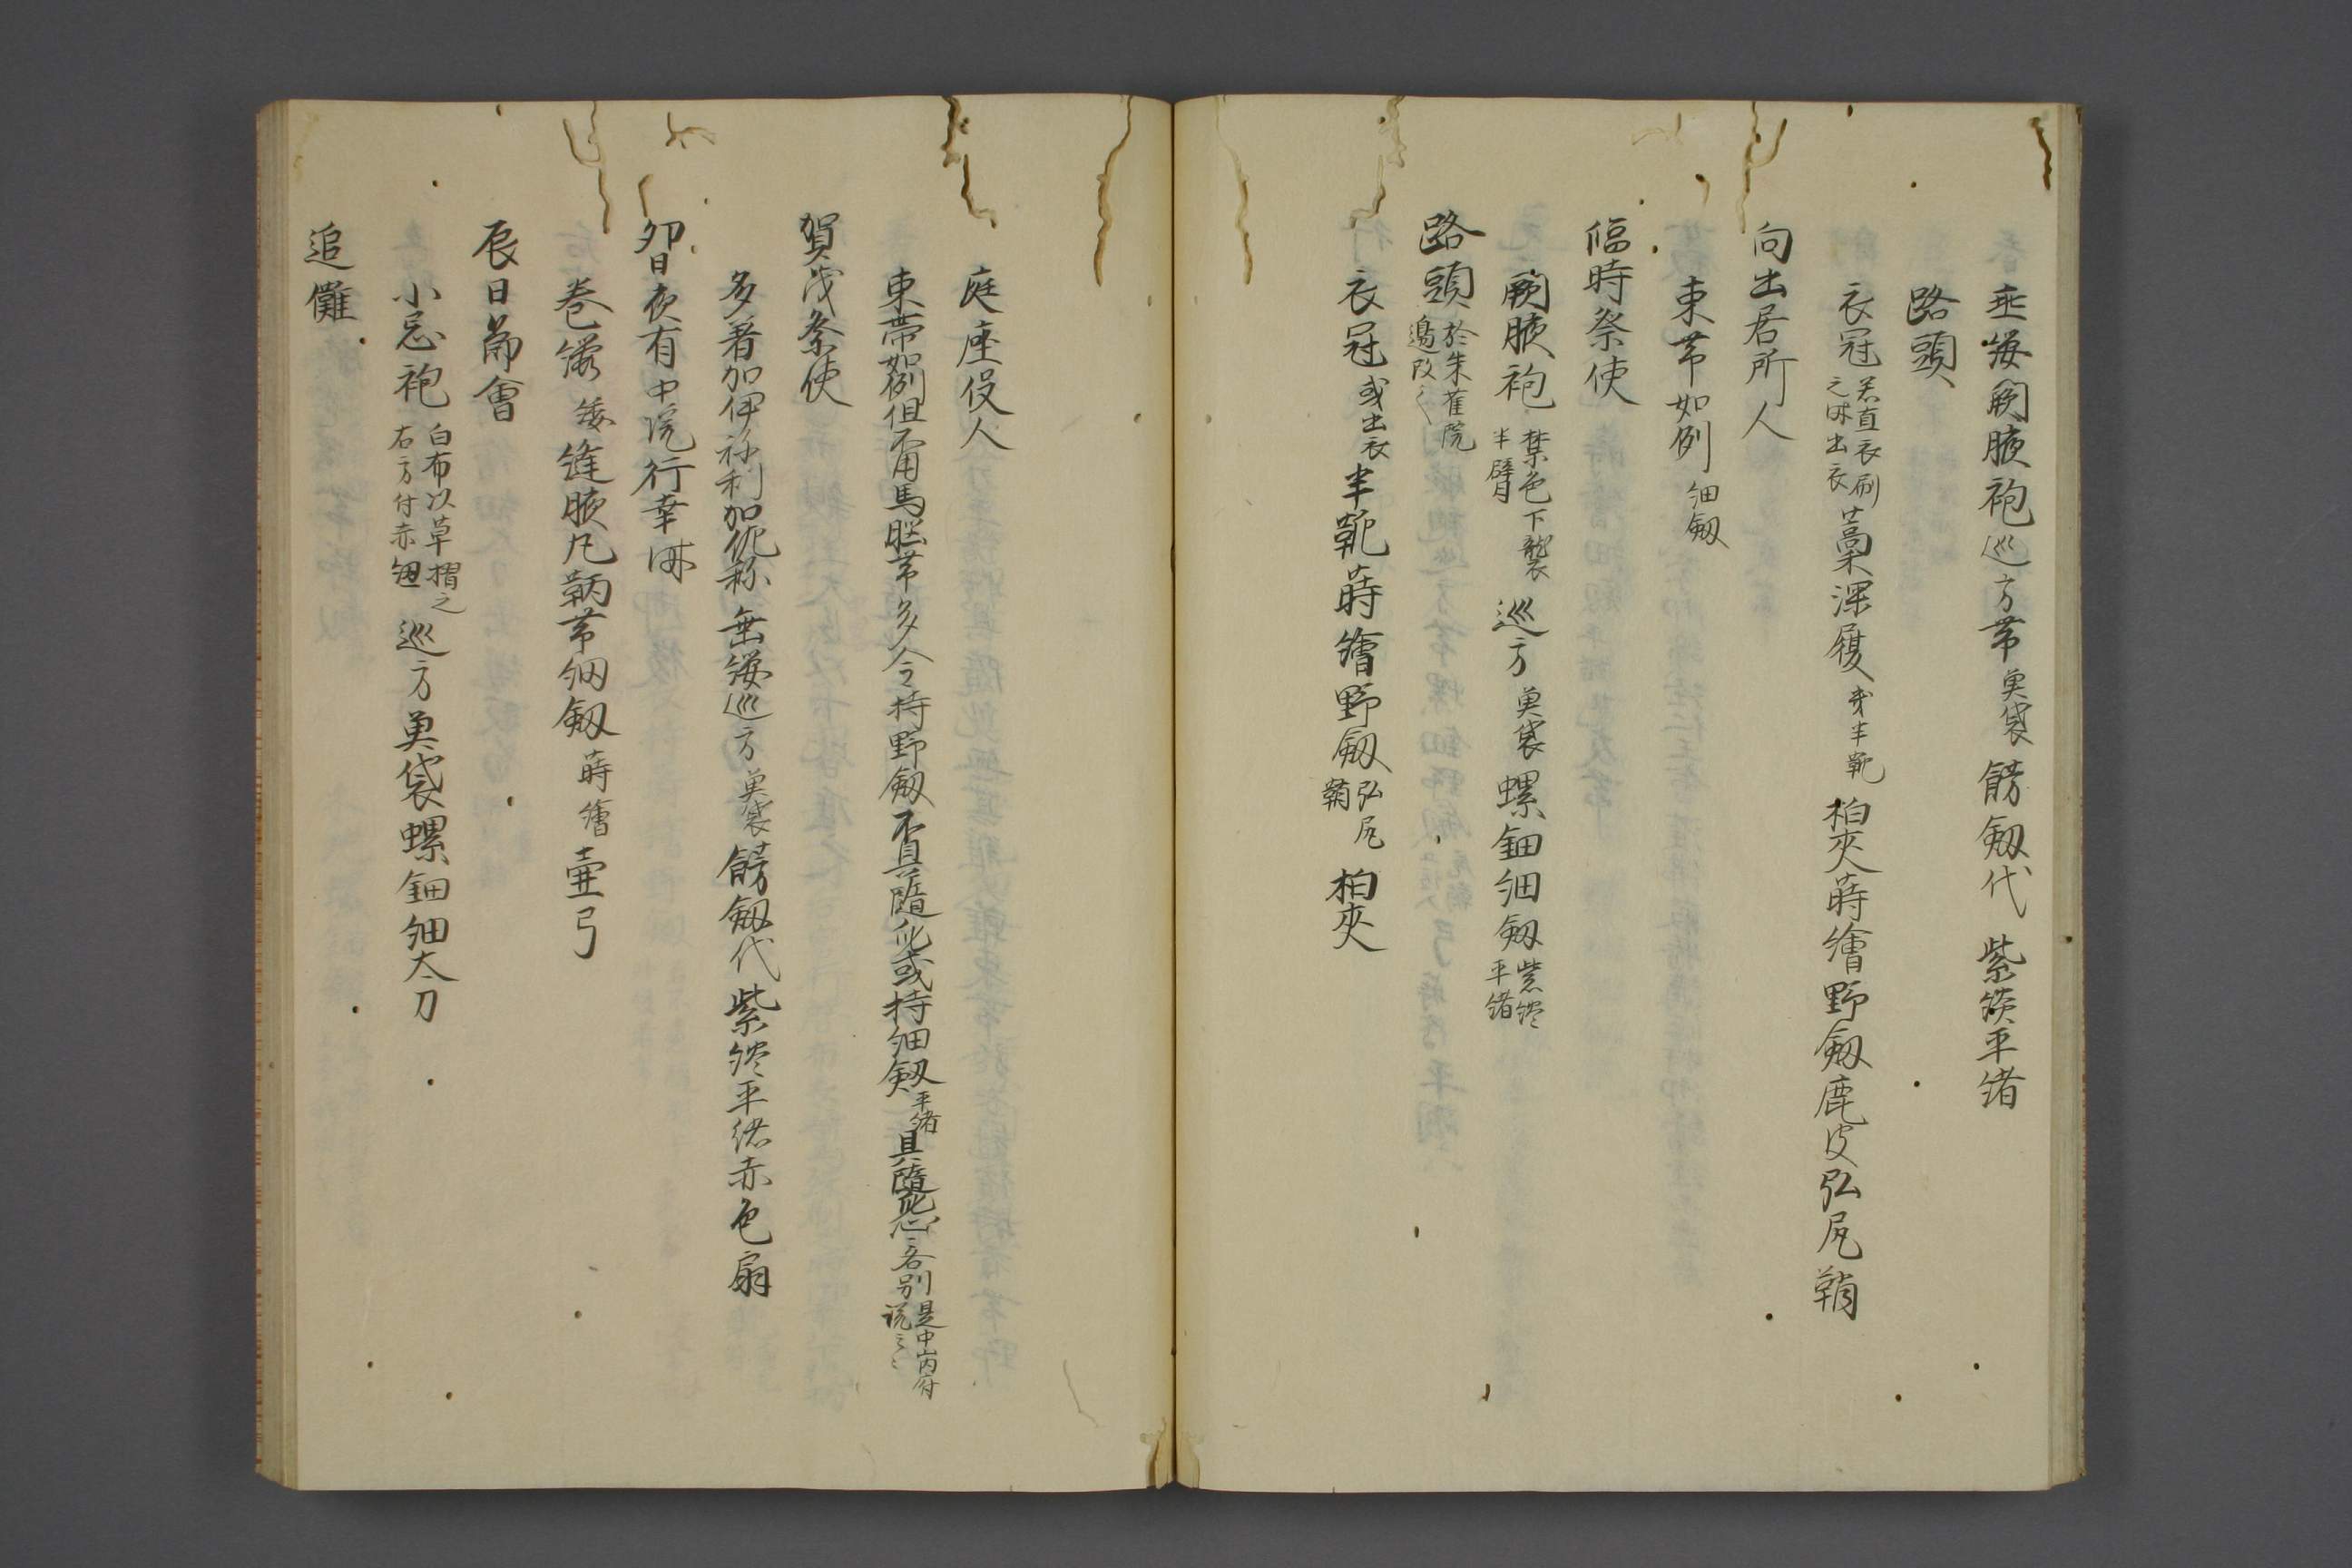 垂纓闕腋袍巡方帯魚袋餝釼代紫緂平緒
路頭
衣冠若直衣刷之時出衣藁深履半靴柏夾蒔繪野釼鹿皮弘尻鞘
向出居所人
束帯如例細釼
臨時祭使
闕腋袍禁色下襲半臂巡方魚袋螺鈿細釼紫緂平緒
路頭於朱雀院邊改之
衣冠或出衣半靴蒔繪野釼弘尻鞘柏夾
庭座役人
束帯如例但不用馬脳帯多令持野釼不具隨身或持細釼平緒具隨身各別是中山内府説云々
賀茂祭使
多著加伊祢利加佐祢垂纓巡方魚袋餝釼代紫緂平緒赤色扇
卯日夜有中院行幸時
巻纓緌縫腋凡鞆帯細釼蒔繪壷弓
辰日節會
小忌袍白布以草摺之右方付赤紐巡方魚袋螺鈿細太刀
追儺